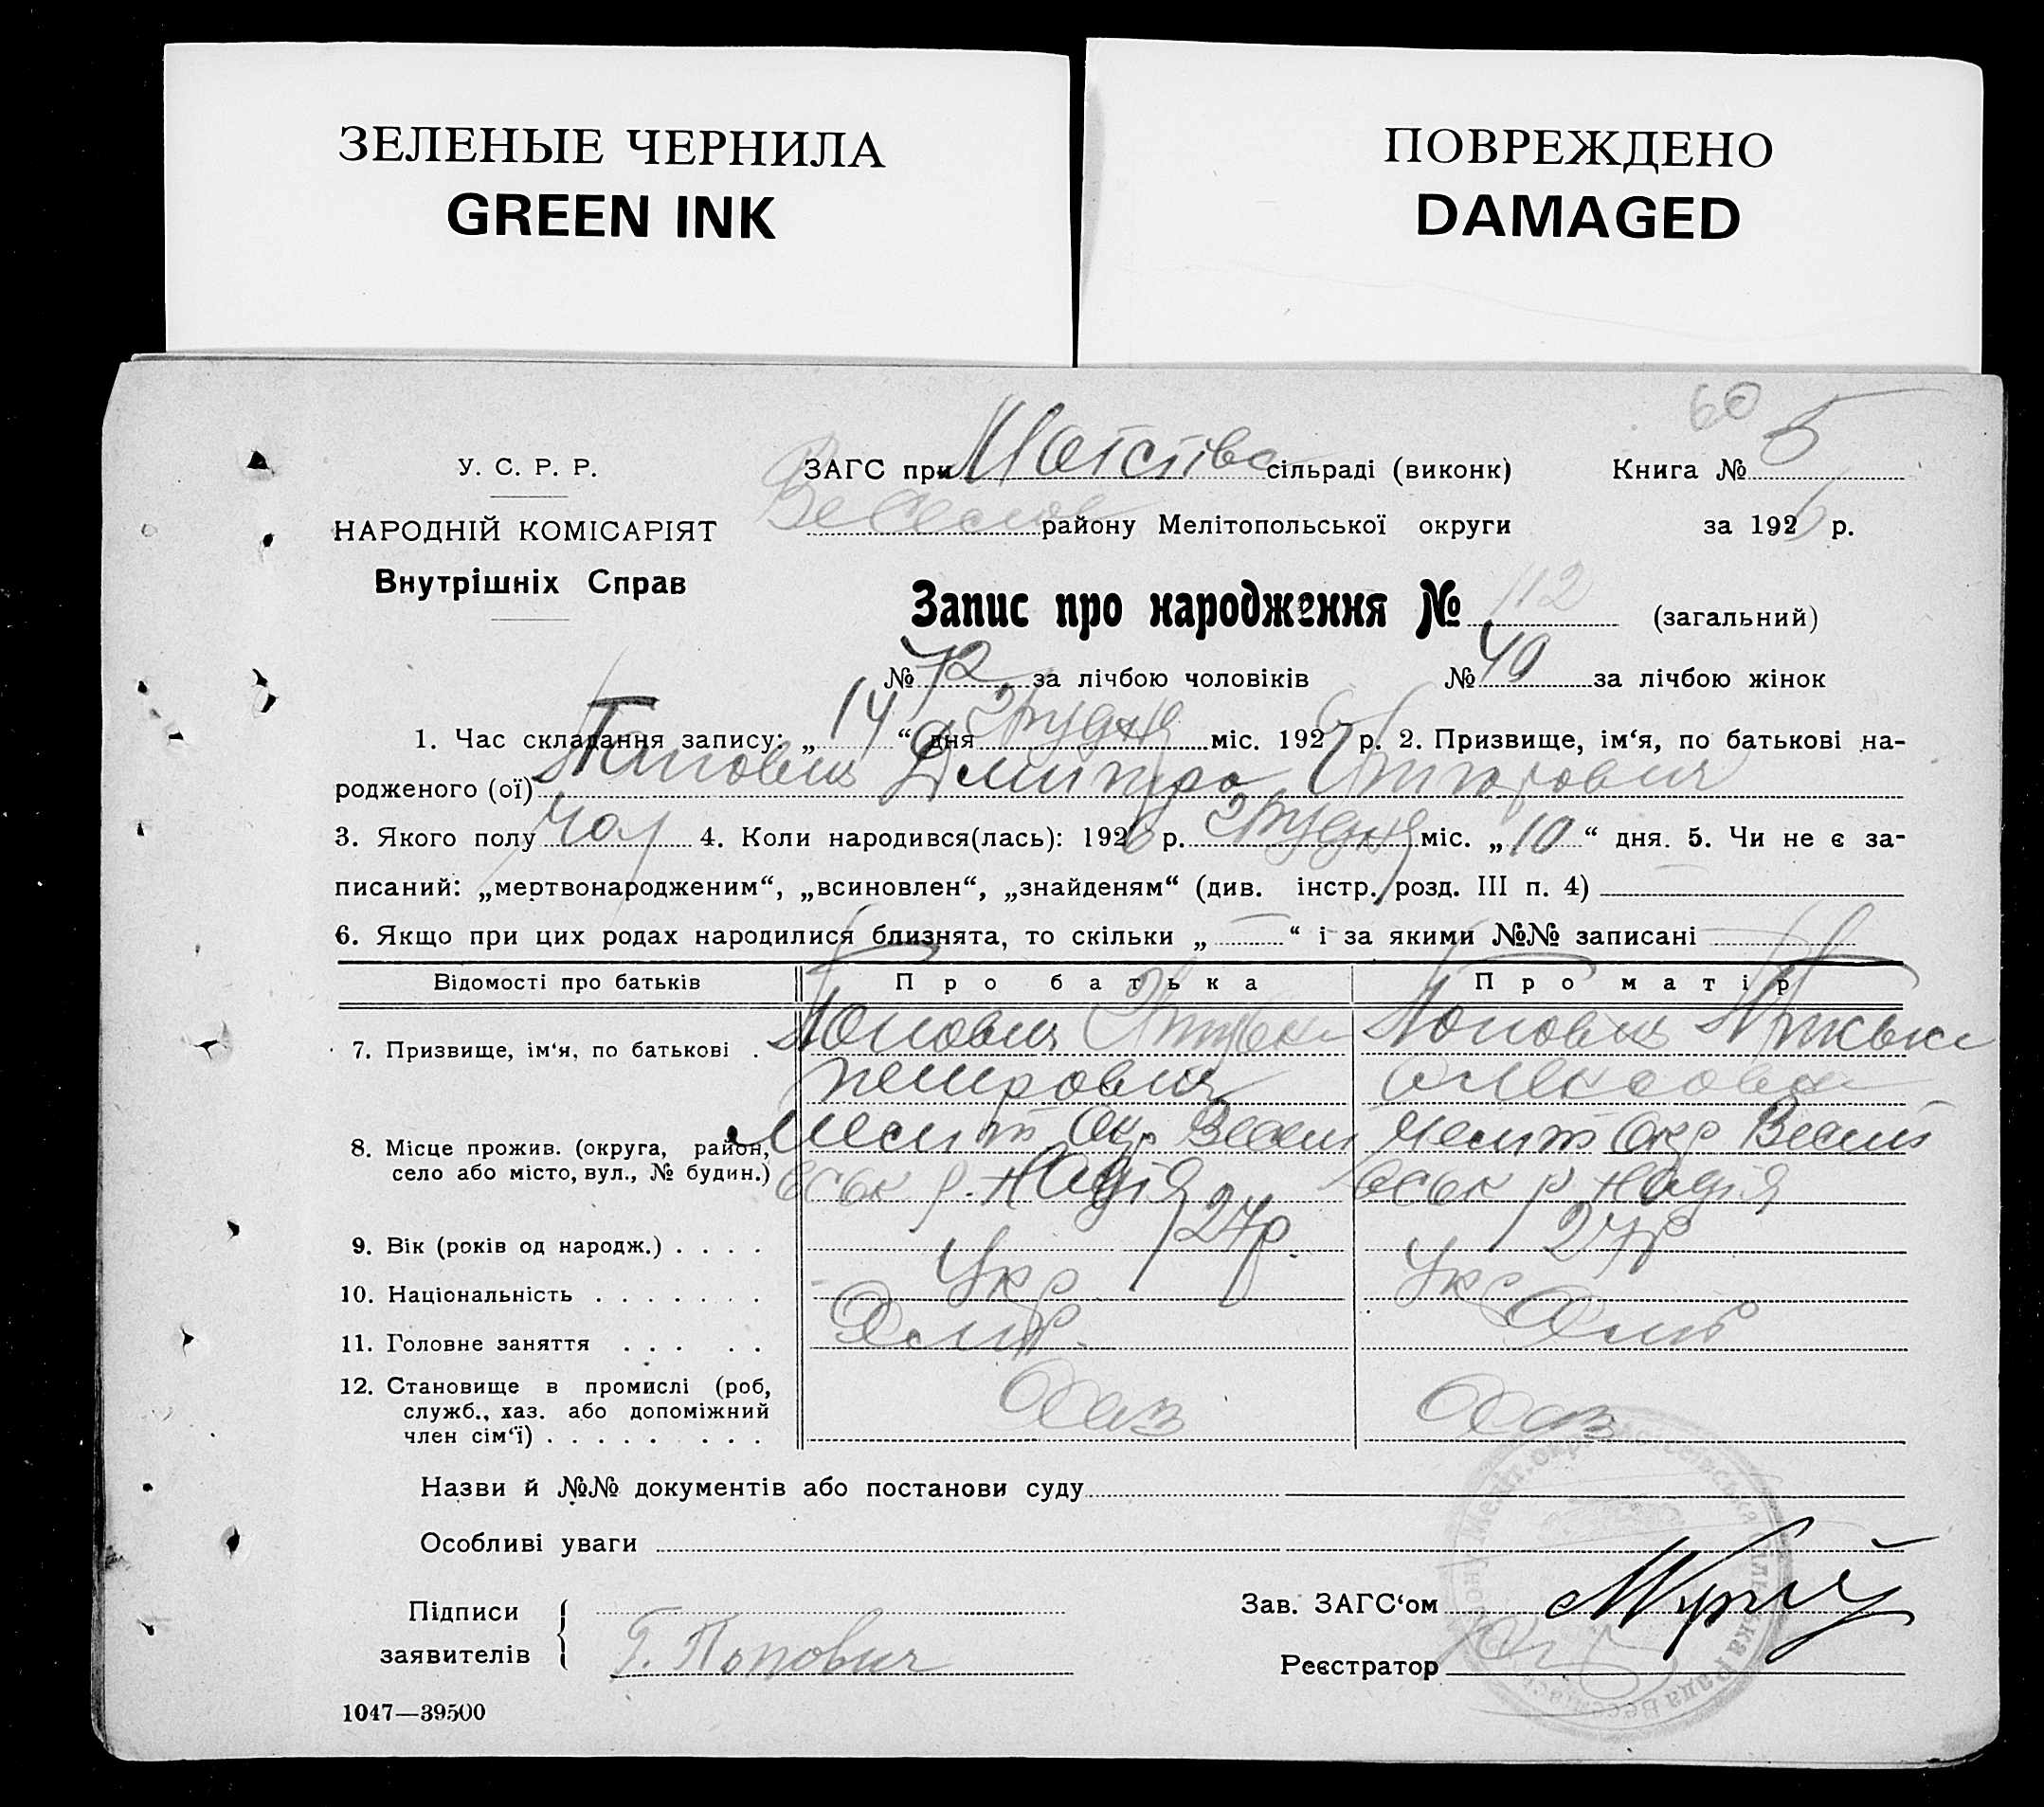 ЗЕЛЕНЫЕ ЧЕРНИЛА
GREEN INK
ПОВРЕЖДЕНО
DAMAGED
60
У. С. Р. Р.
НАРОДНІЙ КОМІСАРІЯТ
Внутрішніх Справ
ЗАГС при сільраді (виконк) Книга № 5
району Мелітопольської округи за 1926 р.
Запис про народження № 112 (загальний)
№ 72 за лічбою чоловіків № 40 за лічбою жінок
1. Час складання запису: „14“ дня Грудня міс. 1926 р. 2. Призвище, ім‘я, по батькові на-
родженого (ої) Попович Дмитро Григорович
3. Якого полу чол 4. Коли народився(лась): 1926 р. Грудня міс. „10“ дня. 5. Чи не є за-
писаний: „мертвонародженим“, „всиновлен“, „знайденям“ (див. інстр. розд. III п. 4)
6. Якщо при цих родах народилися близнята, то скільки „ “ і за якими №№ записані
Відомості про батьків Про батька Про матір
7. Призвище, ім‘я, по батькові . Попович Попович
Петрович Олексовна
8. Місце прожив. (округа, район, Меліт Окр Весел Меліт Окр Весел
село або місто, вул., № будин.) вськ р. Надія вськ р Надія
9. Вік (років од народж.) . . . . 27р. 27р
10. Національність . . . . . . . Укр Укр
11. Головне заняття . . . . .
12. Становище в промислі (роб, служб., хаз. або допоміжний член сім‘ї) . . . . . . . . . Хаз Хаз
Назви й №№ документів або постанови суду
Особливі уваги
Підписи
заявителів
Г. Попович
Зав. ЗАГС‘ом
Реєстратор
1047—39500